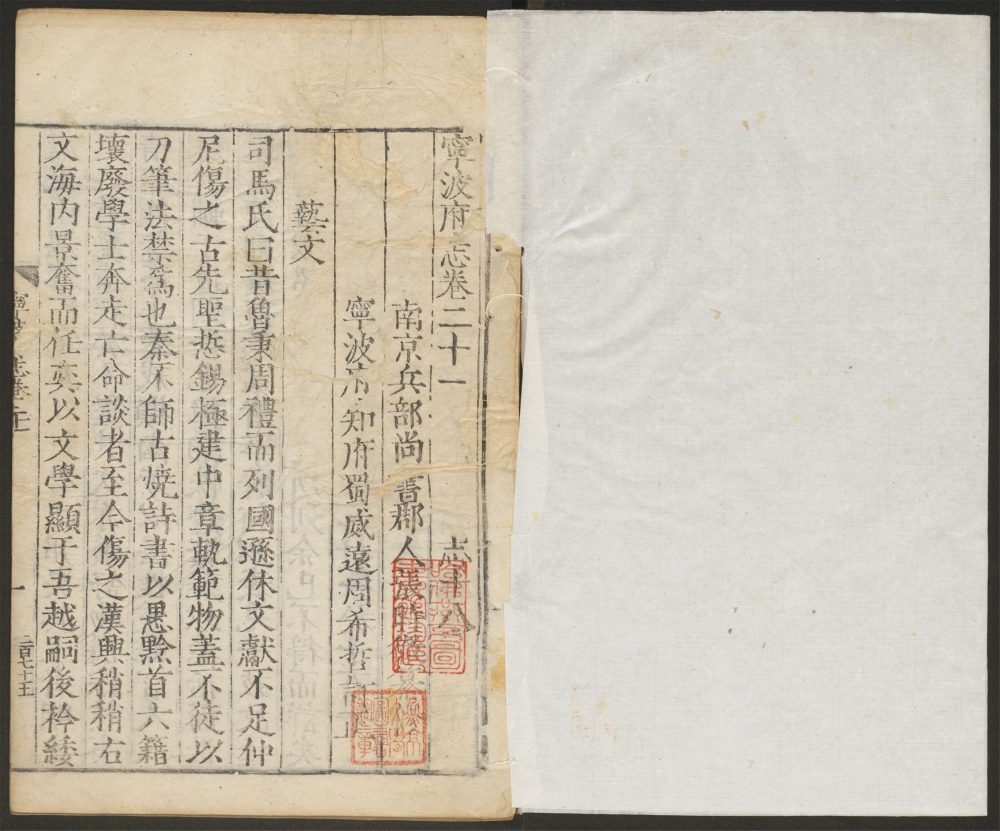 寧波府志卷二十一 志十八
南京兵部尚書郡人張時徹
寧波府知府蜀威遠周希哲訂正
藝文
司馬氏曰昔魯秉周禮而列國遜休文獻不足仲
尼傷之古先聖悊錫極建中章軌範物蓋不徒以
刀筆法禁爲也秦不師古燒詩書以愚黔首六籍
壞廢學士奔走亡命談者至今傷之漢興稍稍右
文海内景奮而任奕以文學顯于吾越嗣後衿緌
一